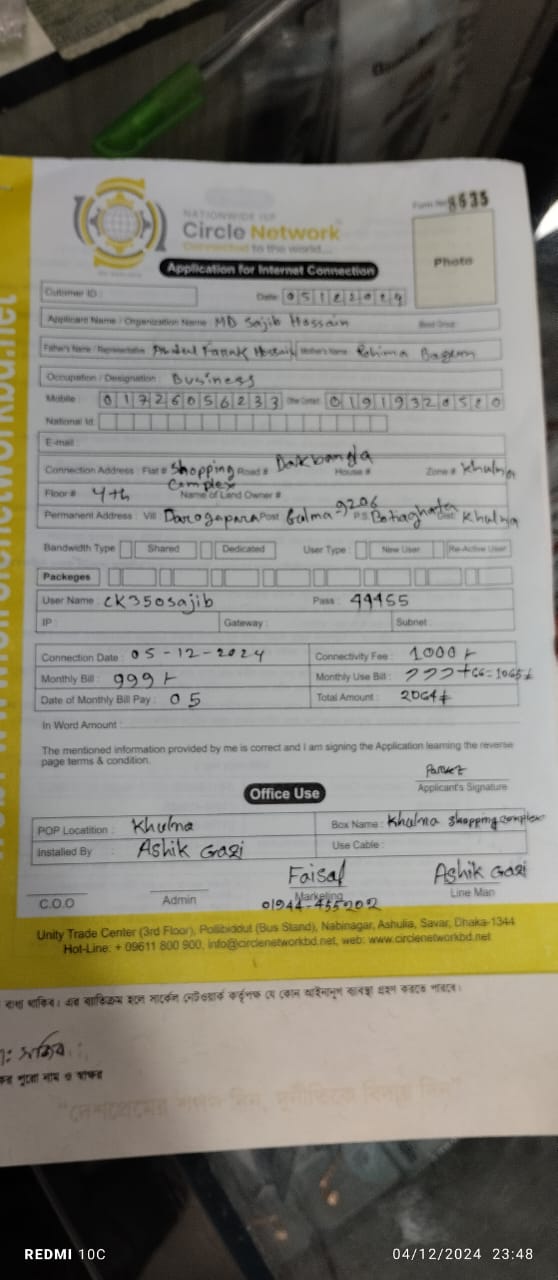 Form No 8635
NATIONWIDE ISP
Circle Network
Connected to the world...
Photo
Application for Internet Connection
Cutomer ID : Date : 05122024
Applicant Name / Organization Name MD Sajib Hossain Blood Group:
Father's Name / Representative Mother's Name Rohima Begum
Occupation / Designation : Business
Mobile : 01726056233 019193205
National Id:
E-mail :
Connection Address : Flat # Shopping Complex Road # Dakbangla House # Zone # Khulna
Floor # 4th Name of Land Owner #
Permanent Address : Vill Darogapara Post Galma-9206 P.S Botiaghata Dist: Khulna
Bandwidth Type Shared Dedicated User Type : New User Re-Active User
Packeges
User Name : CK350sajib Pass : 44455
IP : Gateway : Subnet :
Connection Date : 05-12-2024 Connectivity Fee : 1000
Monthly Bill : 999 Monthly Use Bill : +66=1065
Date of Monthly Bill Pay : 05 Total Amount : 2064
In Word Amount :
The mentioned information provided by me is correct and i am signing the Application learning the reverse
page terms & condition.
Applicant's Signature
Office Use
POP Locatition : Khulna Box Name : Khulna shopping complex
Installed By : Ashik Gazi Use Cable :
Faisal Ashik Gazi
C.O.O Admin Marketing Line Man
01944-455202
Unity Trade Center (3rd Floor), Pollibiddut (Bus Stand), Nabinagar, Ashulia, Savar, Dhaka-1344
Hot-Line: + 09611 800 900, info@circlenetworkbd.net, web: www.circlenetworkbd.net
বাধ্য থাকিব। এর ব্যতিক্রম হলে সার্কেল নেটওয়ার্ক কর্তৃপক্ষ যে কোন আইনানুগ ব্যবস্থা গ্রহণ করতে পারবে।
পুরো নাম ও স্বাক্ষর
"দেশপ্রেমের শপথ নিন, দুর্নীতিকে বিদায় দিন"
REDMI 10C 04/12/2024 23:48